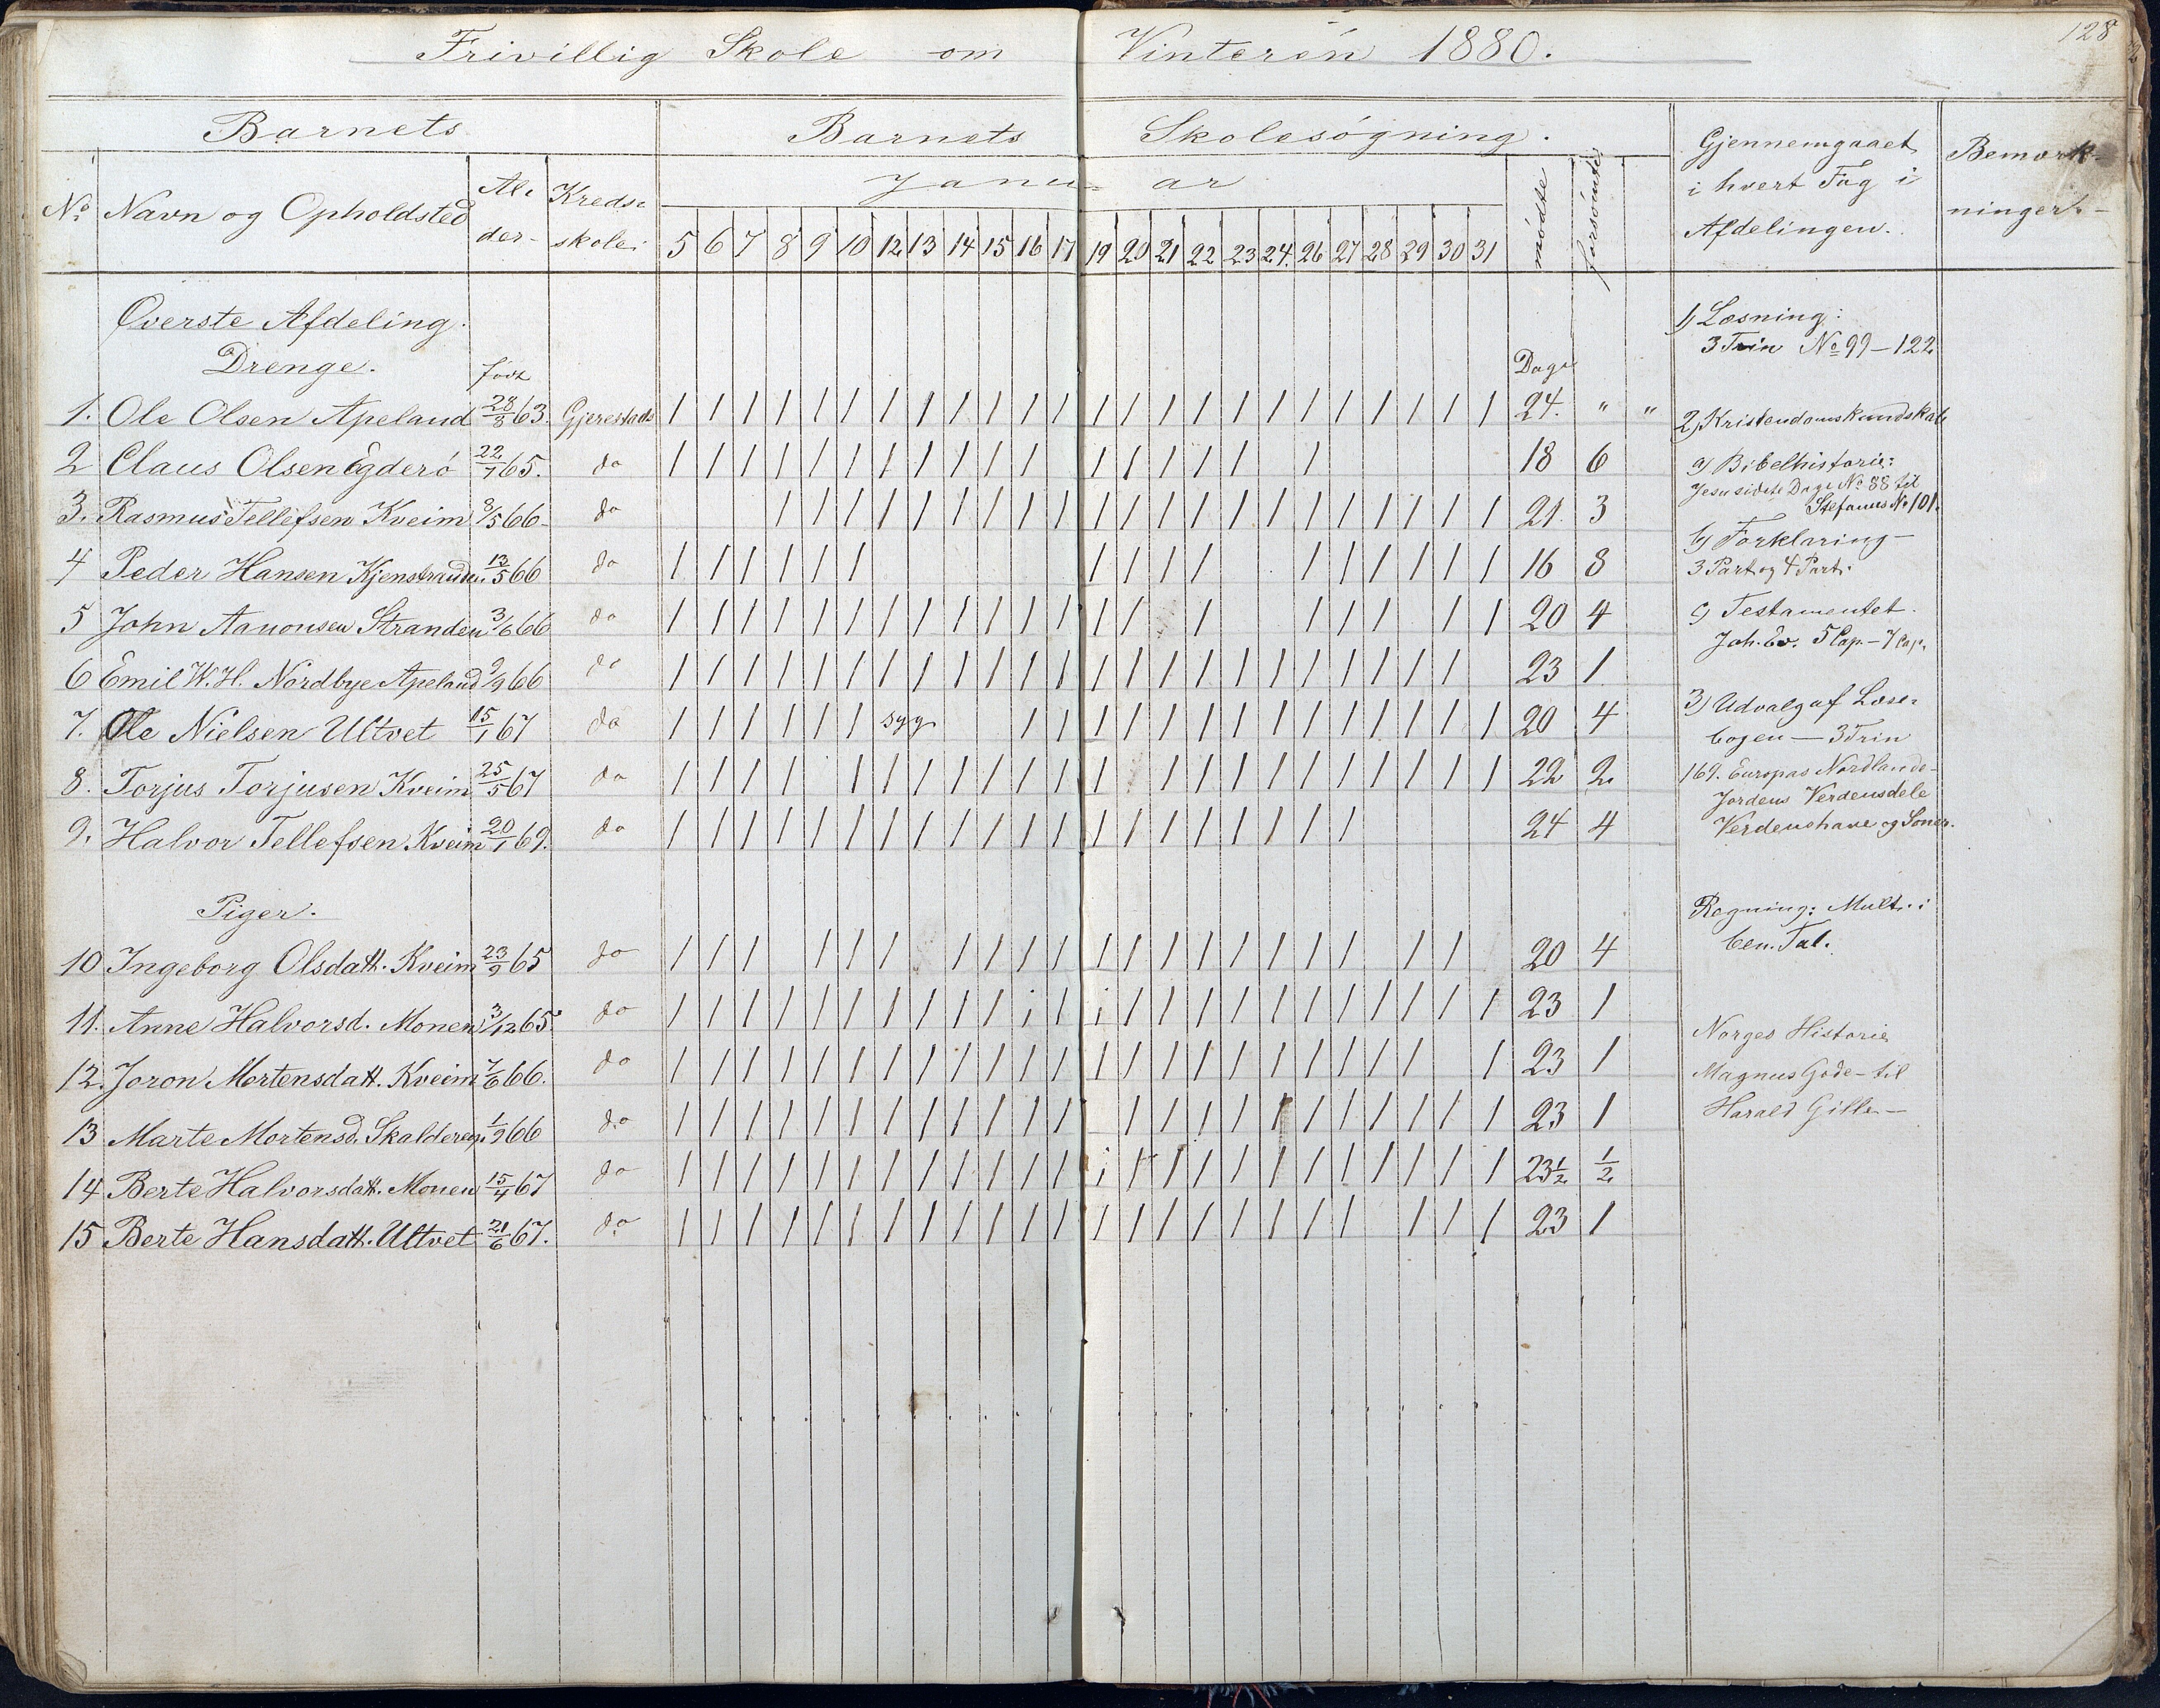 128
Frivillig Skole om Vinteren 1880.
Barnets Barnets Skolesøgning. Gjennemgaaet i hvert Fag i Afdelingen. Bemærk-ninger.
No. Navn og Opholdsted Al-der- Kreds-skole: Januar mødte forsømte
5 6 7 8 9 10 12 13 14 15 16 17 19 20 21 22 23 24. 26 27 28 29 30 31
Øverste Afdeling.
Drenge. født Dage
1. Ole Olsen Apeland 28/8 63. Gjerestads / / / / / / / / / / / / / / / / / / / / / / / / 24. " "
2 Claus Olsen Egderö 22/7 65. do / / / / / / / / / / / / / / / / / / 18 6
3. Rasmus Tellefsen Kveim 3/5 66- do / / / / / / / / / / / / / / / / / / / / / 21. 3
4 Peder Hansen Kjenstranden. 13/5 66 do / / / / / / / / / / / / / / / / 16 8
5 John Aanonsen Stranden 3/6 66 do / / / / / / / / / / / / / / / / / / / / 20 4
6 Emil W. H. Nordbye Apeland 9/9 66 do / / / / / / / / / / / / / / / / / / / / / / / 23 1
7. Ole Nielsen Ultvet 15/1 67 do / / / / / / syg / / / / / / / / / / / / / / 20 4
8. Torjus Torjusen Kveim 25/5 67 do / / / / / / / / / / / / / / / / / / / / / / 22 2
9. Halvor Tellefsen Kveim 20/1 69. do / / / / / / / / / / / / / / / / / / / / 24 4
Piger.
10 Ingeborg Olsdatt. Kveim 23/9 65 do / / / / / / / / / / / / / / / / / / / / 20 4
11. Anne Halvorsd. Monen 3/12 65. do / / / / / / / / / / i / i / / / / / / / / / / / 23 1
12. Joron Mortensdatt. Kveim 7/6 66. do / / / / / / / / / / / / / / / / / / / / / / / 23 1
13 Marte Mortensd. Skaldereg. 1/9 66 do / / / / / / / / / / / / / / / / / / / / / / / 23 1
14 Berte Halvorsdatt. Monen 15/4 67 do / / / / / / / / / / / / i / / / / / / / / / / / 23½ ½
15 Berte Hansdatt. Ultvet 21/6 67. do / / / / / / / / / / / / / / / / / / / / / / / 23 1
1) Læsning:
3 Trin No 99 – 122
2) Kristendomskundskab
a) Bibelhistorie:
Jesu sidste Dage No 88 til
Stefanus No 101.
b) Forklaring –
3 Part og 4 Part.
c) Testamentet.
Joh. Ev. 5 Cap – 7 Cap.
3) Udvalg af Læse-
bogen — 3 Trin
169. Europas Nordlande-
Jordens Verdensdele
Verdenshave og Soner.
Regning: Mult. i
ben. Tal.
Norges Historie
Magnus Gode – til
Harald Gille –